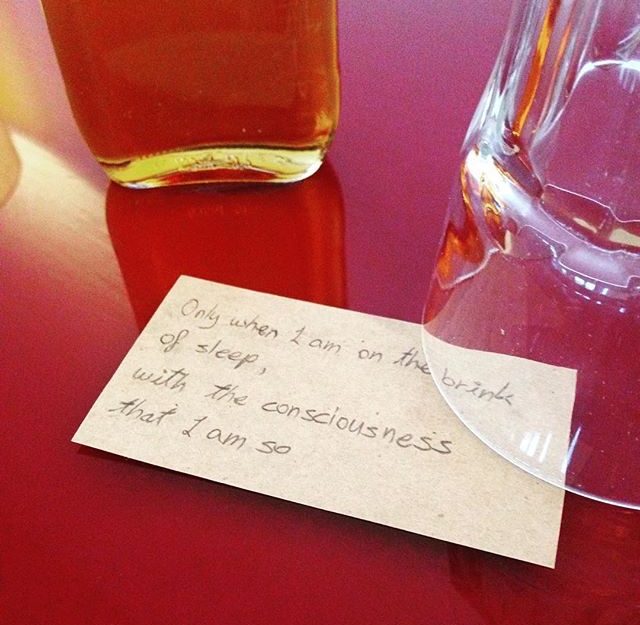 Only when I am on the brink
of sleep,
with the consciousness
that I am so